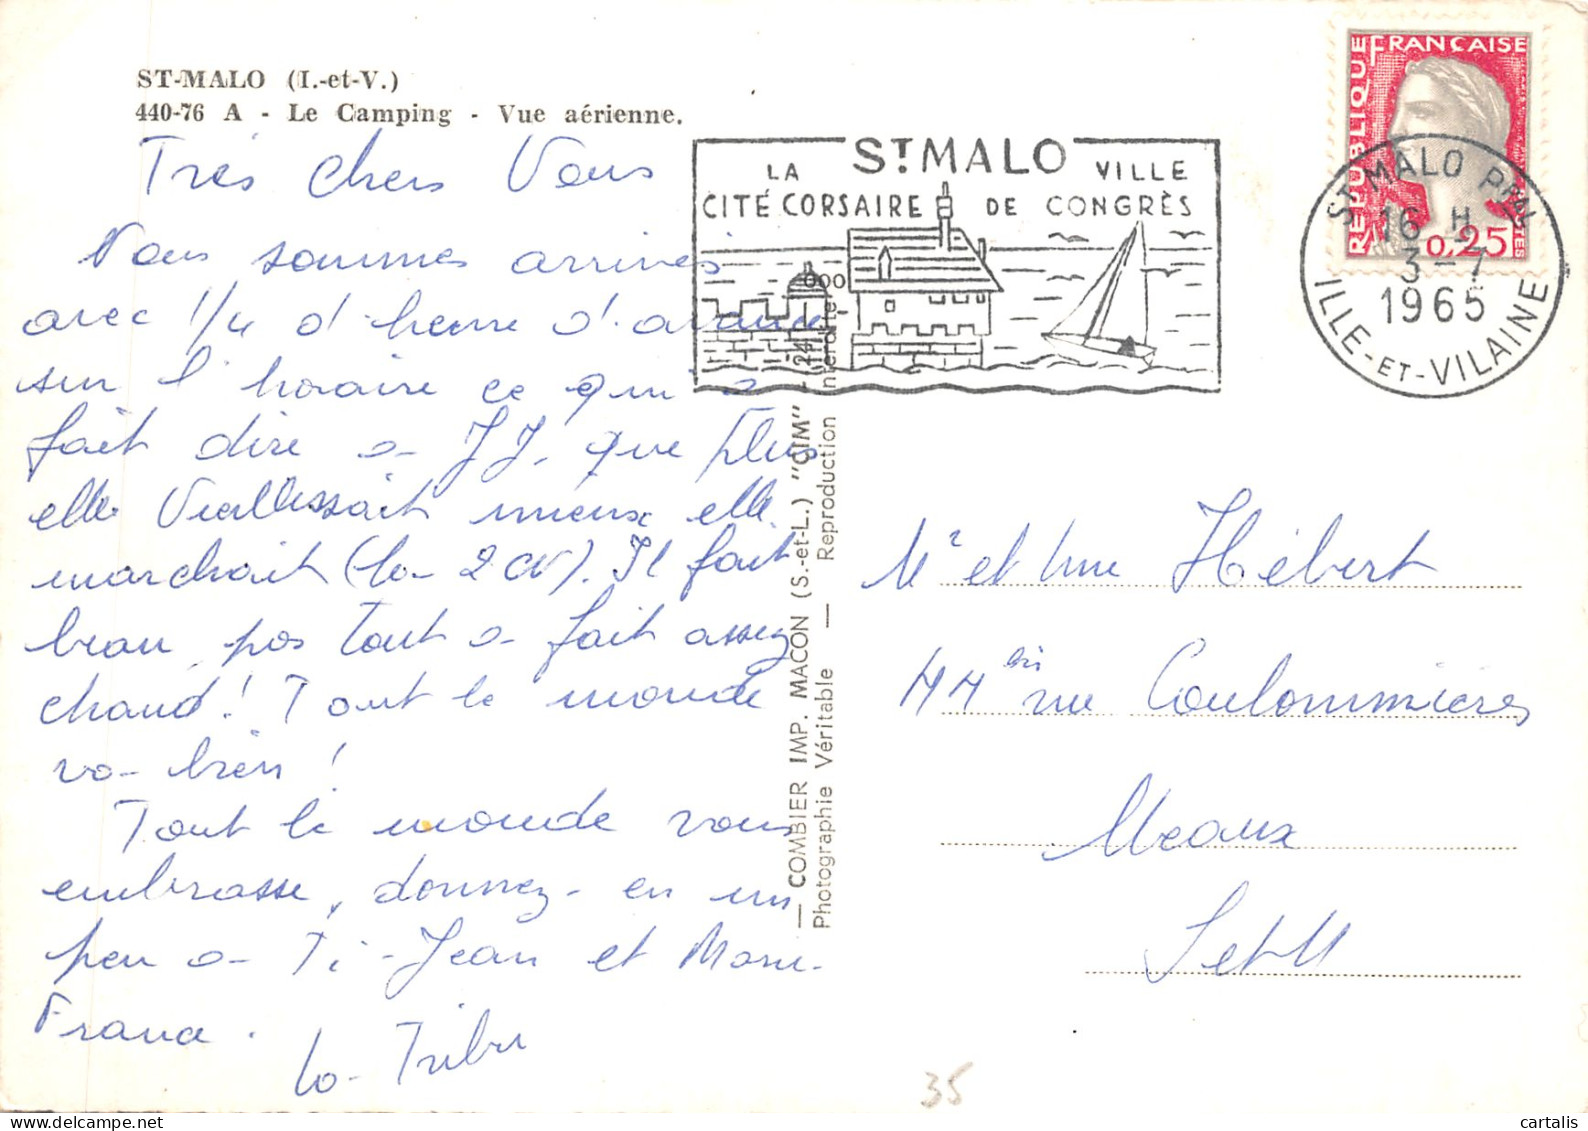 ST-MALO (I.-et-V.)
440-76 A - Le Camping - Vue aérienne.
Très chers Vous
Nous sommes arrivés
avec 1/4 d'heure d'avance
sur l'horaire ce qui a
fait dire a JJ. que plus
elle Vieillissait mieux elle
marchait (la 2 CV). Il fait
beau, pas tout a fait assez
chaud! Tout le monde
va bien!
Tout le monde vous
embrasse, donnez-en un
peu a Ti-Jean et Marie-
France.
La Tribu
ST MALO
LA CITÉ CORSAIRE
VILLE DE CONGRÈS
RÉPUBLIQUE FRANÇAISE
POSTES
0,25
ST MALO PPAL
16 H
3 - 7
1965
ILLE-ET-VILAINE
— COMBIER IMP. MACON (S.-et-L.) "CIM"
Photographie Véritable — Reproduction interdite
Mr et Mme Hébert
44 bis rue Coulommières
Meaux
S et M
35
cartalis